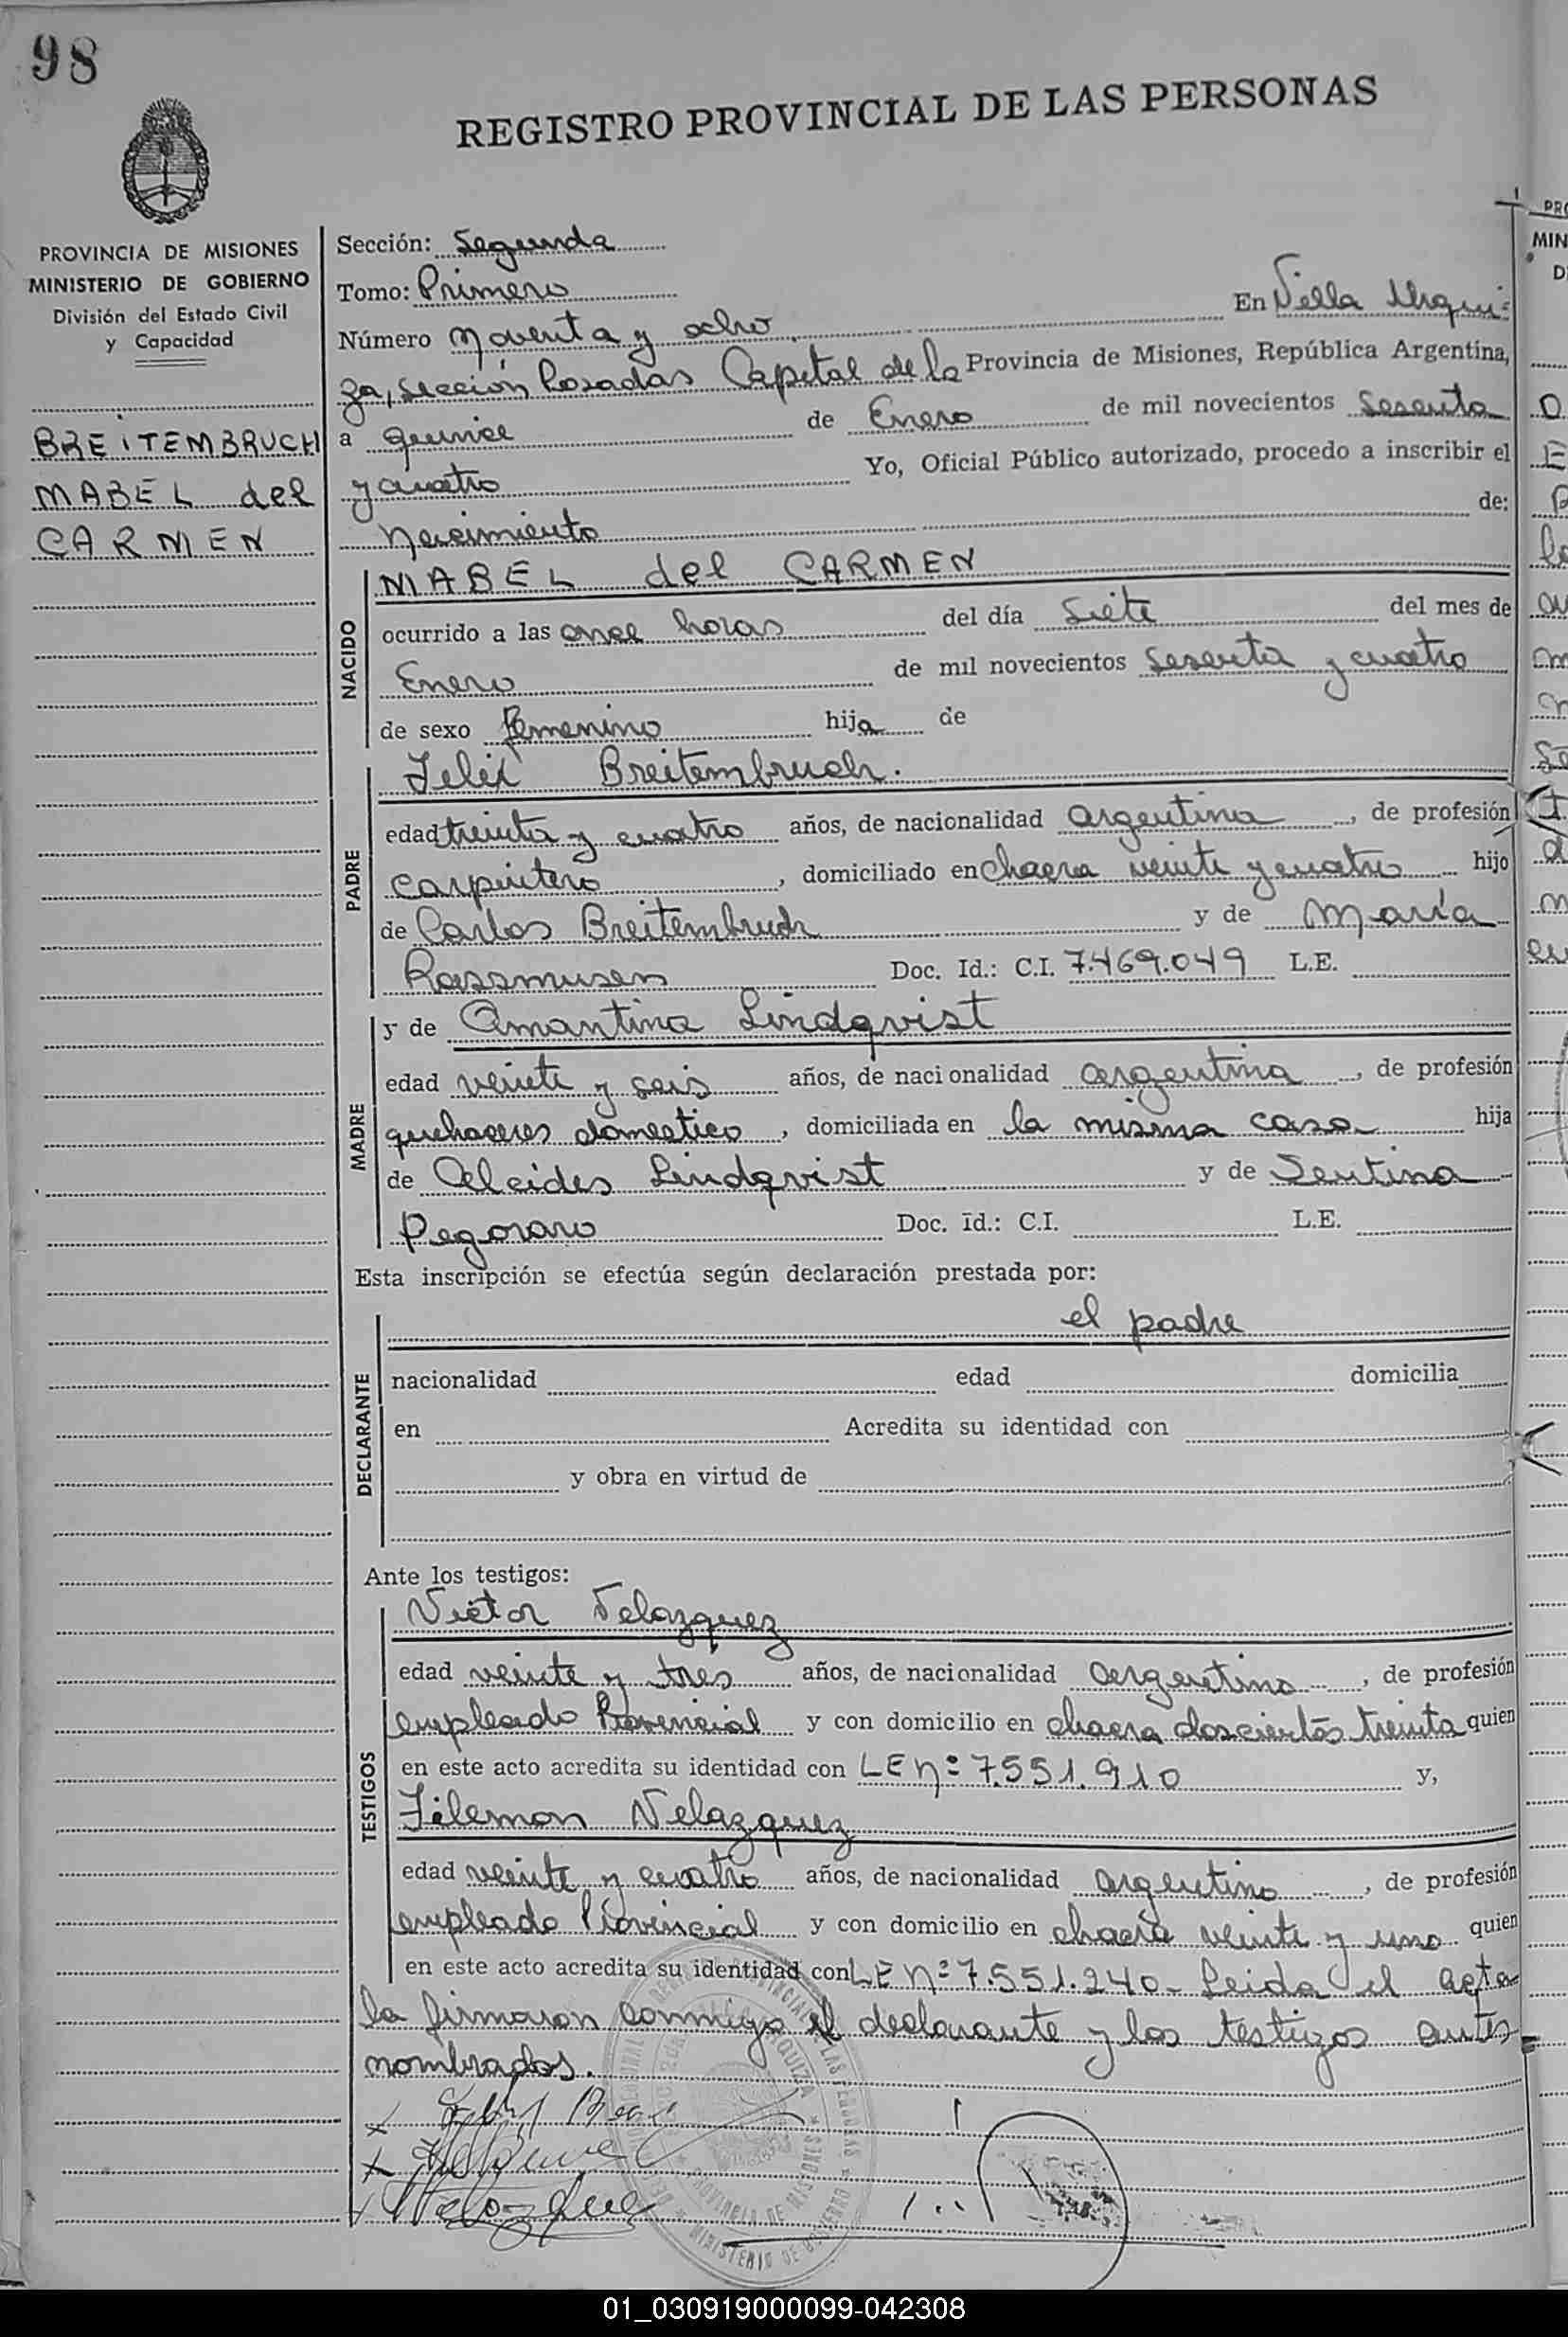 98
REGISTRO PROVINCIAL DE LAS PERSONAS
PROVINCIA DE MISIONES
MINISTERIO DE GOBIERNO
División del Estado Civil
y Capacidad
BREITEMBRUCH
MABEL del
CARMEN
Sección: Segunda
Tomo: Primero
Número noventa y ocho En Villa Urqui-
za, sección Posadas Capital de la Provincia de Misiones, República Argentina,
a quince de Enero de mil novecientos sesenta
y cuatro Yo, Oficial Público autorizado, procedo a inscribir el
nacimiento de:
NACIDO
MABEL del CARMEN
ocurrido a las once horas del día siete del mes de
Enero de mil novecientos sesenta y cuatro
de sexo femenino hija de
PADRE
Felix Breitembruch.
edad treinta y cuatro años, de nacionalidad argentina, de profesión
carpintero, domiciliado en chacra veinte y cuatro hijo
de Carlos Breitembruch y de María
Rassmusen Doc. Id.: C.I. 7.469.049 L.E.
MADRE
y de Amantina Lindqvist
edad veinte y seis años, de nacionalidad argentina, de profesión
quehaceres domestico, domiciliada en la misma casa hija
de Alcides Lindqvist y de Sentina
Pegoraro Doc. Id.: C.I. L.E.
Esta inscripción se efectúa según declaración prestada por:
DECLARANTE
el padre
nacionalidad edad domicilia
en Acredita su identidad con
y obra en virtud de
Ante los testigos:
TESTIGOS
Victor Velazquez
edad veinte y tres años, de nacionalidad argentino, de profesión
empleado Provincial y con domicilio en chacra doscientos treinta quien
en este acto acredita su identidad con LE nº 7.551.910 y,
Filemon Velazquez
edad veinte y cuatro años, de nacionalidad argentino, de profesión
empleado Provincial y con domicilio en chacra veinte y uno quien
en este acto acredita su identidad con LE nº 7.551.240- Leida el acta
la firmaron conmigo el declarante y los testigos antes
nombrados.
01_030919000099-042308